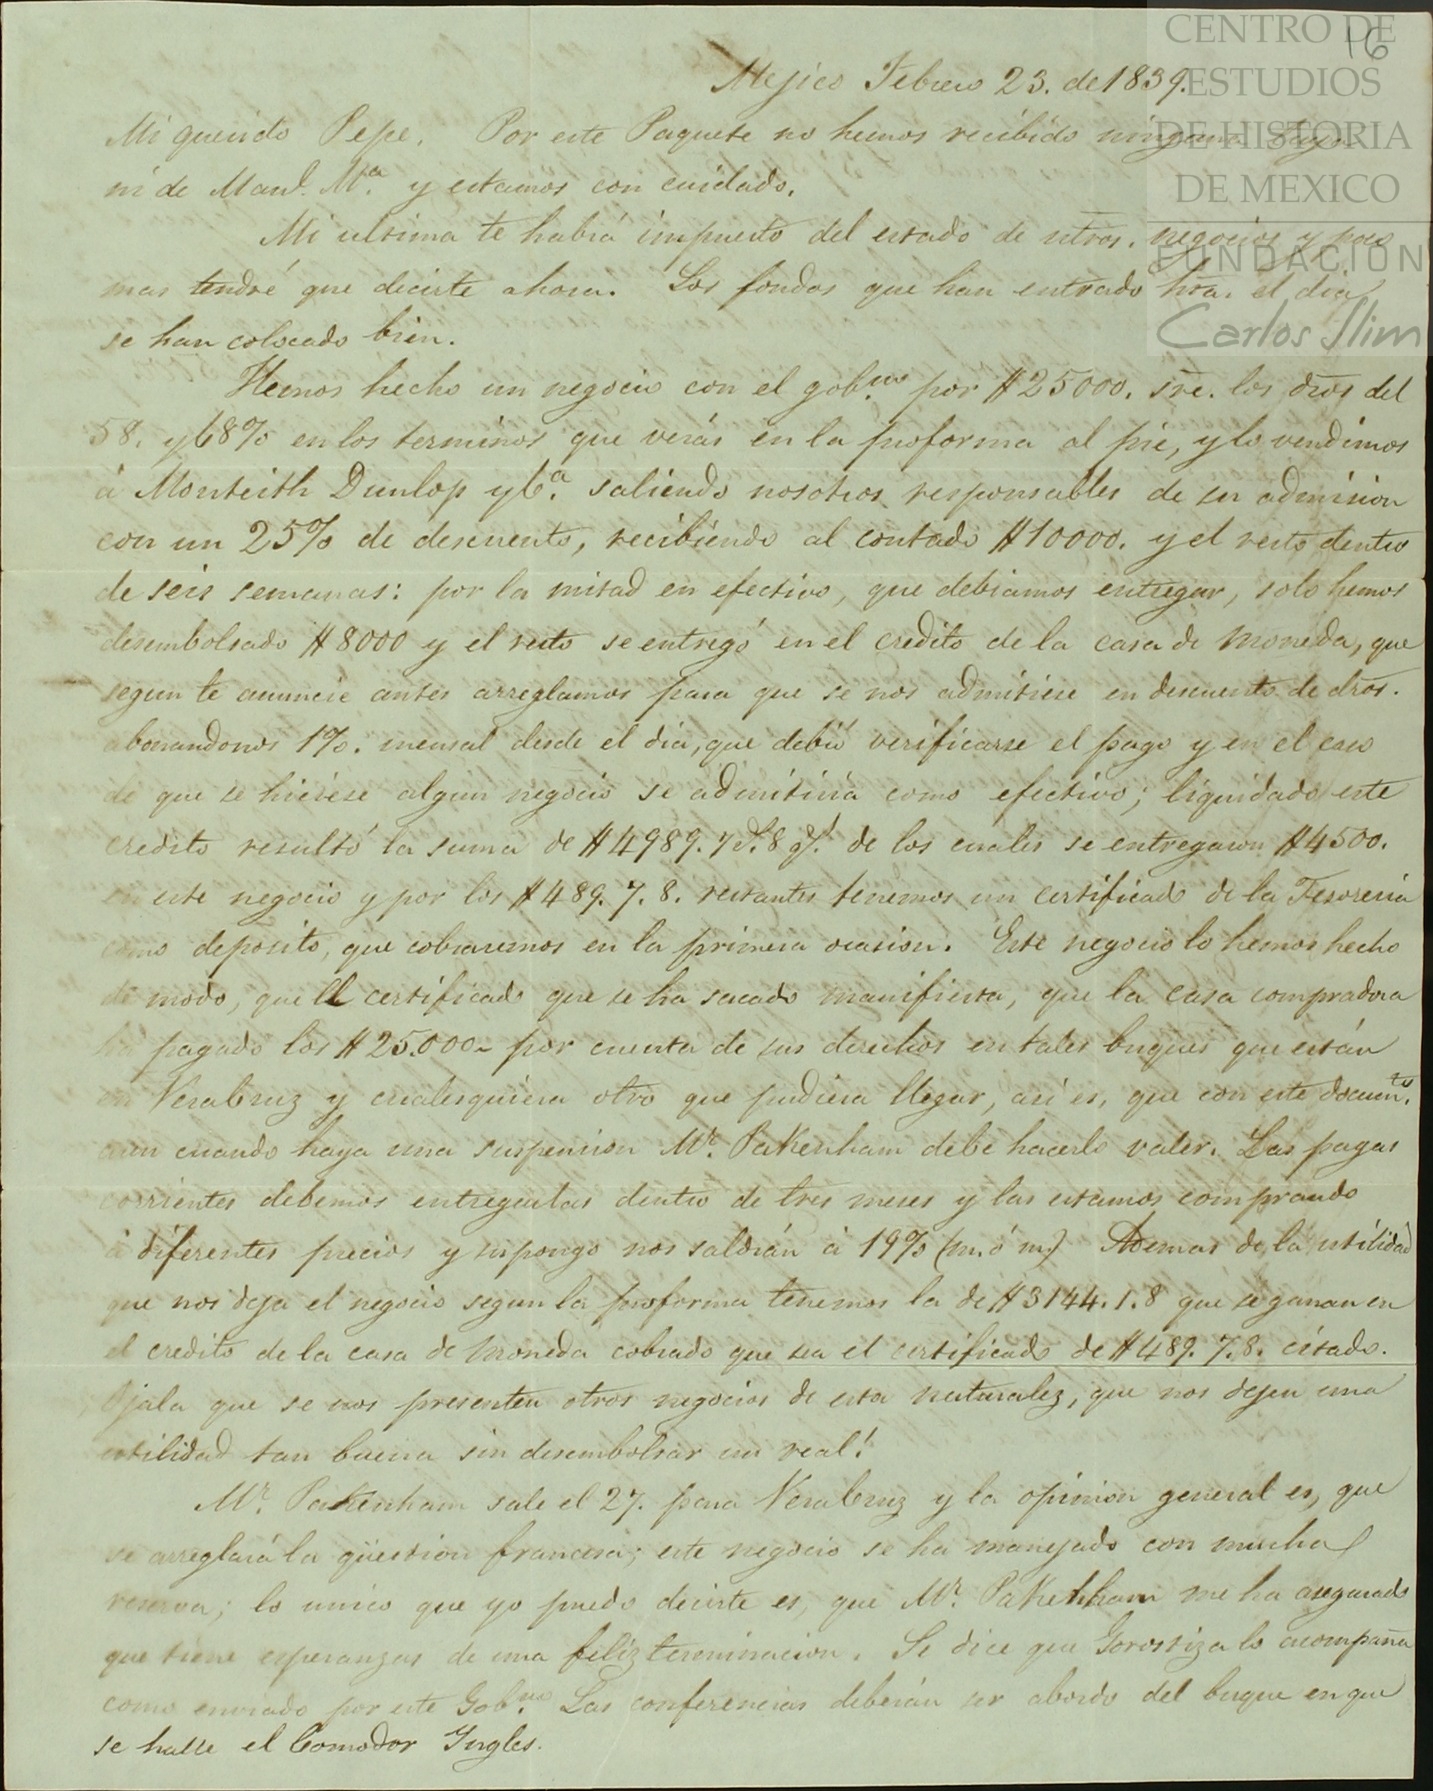 CENTRO DE
ESTUDIOS
DE HISTORIA
DE MEXICO
FUNDACIÓN
Carlos Slim
16
Mejico Febrero 23. de 1839.
Mi querido Pepe. Por este Paquete no hemos recibido ninguna tuya
ni de Manl. Ma. y estamos con cuidado.
Mi ultima te habrá impuesto del estado de ntros. negocios y poco
mas tendré que decirte ahora. Los fondos que han entrado hta. el dia
se han colocado bien.
Hemos hecho un negocio con el gobno. por $25000. sre. los dros del
58. y 68% en los terminos que verás en la proforma al pie, y lo vendimos
á Monteith Dunlop y Ca. saliendo nosotros responsables de su admision
con un 25% de descuento, recibiendo al contado $10000. y el resto dentro
de seis semanas: por la mitad en efectivo, que debiamos entregar, solo hemos
desembolsado $8000 y el resto se entregó en el credito de la casa de moneda, que
segun te anuncié antes arreglamos para que se nos admitiese en descuento de dros.
abonandonos 1%. mensal desde el dia, que debió verificarse el pago y en el caso
de que se hiciese algun negocio se admitiria como efectivo; liquidado este
credito resultó la suma de $4989. 7 rs. 8 gs. de los cuales se entregaron $4500.
en este negocio y por los $489. 7. 8. restantes tenemos un certificado de la Tesoreria
como deposito, que cobraremos en la primera ocasion. Este negocio lo hemos hecho
de modo, que el certificado que se ha sacado manifiesta, que la casa compradora
ha pagado los $25.000 por cuenta de sus derechos en tales buques que están
en VeraCruz y cualesquiera otro que pudiera llegar, asi es, que con este documto.
aun cuando haya una suspension Mr. Pakenham debe hacerlo valer. Las pagas
corrientes debemos entregarlas dentro de tres meses y las estamos comprando
á diferentes precios y supongo nos saldrán á 19% (m. ó m.) Ademas de la utilidad
que nos deja el negocio segun la proforma tenemos la de $3144. 1. 8 que se ganan en
el credito de la casa de moneda cobrado que sea el certificado de $489. 7. 8. citado.
Ojala que se nos presenten otros negocios de esta naturalez, que nos dejen una
utilidad tan buena sin desembolsar un real!
Mr. Pakenham sale el 27. para VeraCruz y la opinion general es, que
se arreglará la qüestion francesa; este negocio se ha manejado con mucha
reserva; lo unico que yo puedo decirte es, que Mr. Pakenham me ha asegurado
que tiene esperanzas de una feliz terminacion. Se dice que Gorostiza lo acompaña
como enviado por este Gobno. Las conferencias deberán ser abordo del buque en que
se halle el Comodor Ingles.